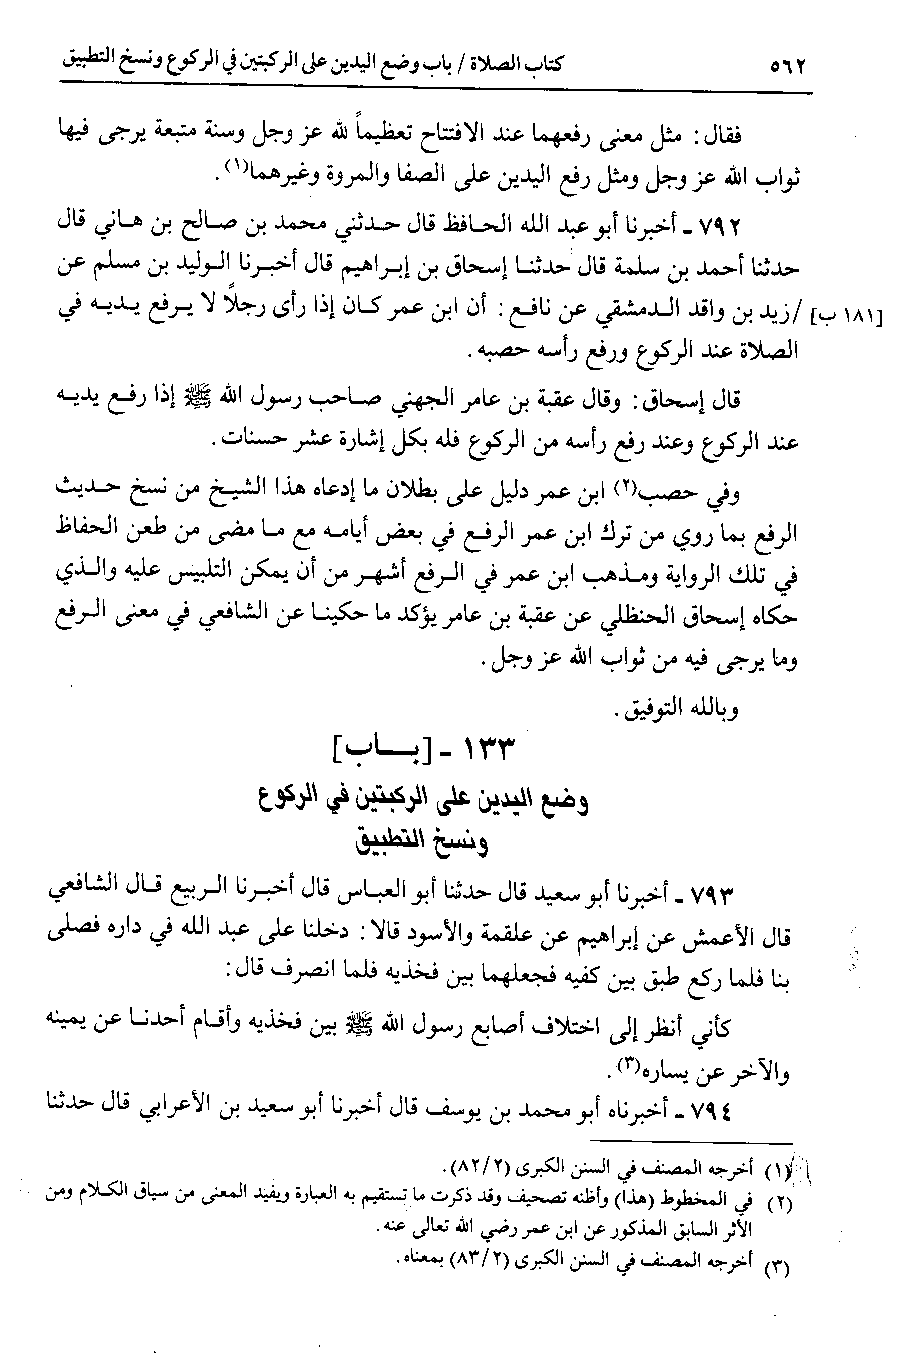 ٥٦٢ كتاب الصلاة / باب وضع اليدين على الركبتين في الركوع ونسخ التطبيق
فقال : مثل معنى رفعهما عند الافتتاح تعظيماً لله عز وجل وسنة متبعة يرجى فيها
ثواب الله عز وجل ومثل رفع اليدين على الصفا والمروة وغيرهما(١) .
٧٩٢ - أخبرنا أبو عبد الله الحافظ قال حدثني محمد بن صالح بن هاني قال
حدثنا أحمد بن سلمة قال حدثنا إسحاق بن إبراهيم قال أخبرنا الوليد بن مسلم عن
[١٨١ ب] / زيد بن واقد الدمشقي عن نافع : أن ابن عمر كان إذا رأى رجلاً لا يرفع يديه في
الصلاة عند الركوع ورفع رأسه حصبه .
قال إسحاق : وقال عقبة بن عامر الجهني صاحب رسول الله ﷺ إذا رفع يديه
عند الركوع وعند رفع رأسه من الركوع فله بكل إشارة عشر حسنات .
وفي حصب(٢) ابن عمر دليل على بطلان ما إدعاه هذا الشيخ من نسخ حديث
الرفع بما روي من ترك ابن عمر الرفع في بعض أيامه مع ما مضى من طعن الحفاظ
في تلك الرواية ومذهب ابن عمر في الرفع أشهر من أن يمكن التلبيس عليه والذي
حكاه إسحاق الحنظلي عن عقبة بن عامر يؤكد ما حكينا عن الشافعي في معنى الرفع
وما يرجى فيه من ثواب الله عز وجل .
وبالله التوفيق .
١٣٣ - [بــاب]
وضع اليدين على الركبتين في الركوع
ونسخ التطبيق
٧٩٣ - أخبرنا أبو سعيد قال حدثنا أبو العباس قال أخبرنا الربيع قال الشافعي
قال الأعمش عن إبراهيم عن علقمة والأسود قالا : دخلنا على عبد الله في داره فصلى
بنا فلما ركع طبق بين كفيه فجعلهما بين فخذيه فلما انصرف قال :
كأني أنظر إلى اختلاف أصابع رسول الله ﷺ بين فخذيه وأقام أحدنا عن يمينه
والآخر عن يساره(٣) .
٧٩٤ - أخبرناه أبو محمد بن يوسف قال أخبرنا أبو سعيد بن الأعرابي قال حدثنا
(١) أخرجه المصنف في السنن الكبرى (٨٢/٢) .
(٢) في المخطوط (هذا) وأظنه تصحيف وقد ذكرت ما تستقيم به العبارة ويفيد المعنى من سياق الكلام ومن
الأثر السابق المذكور عن ابن عمر رضي الله تعالى عنه .
(٣) أخرجه المصنف في السنن الكبرى (٨٣/٢) بمعناه .